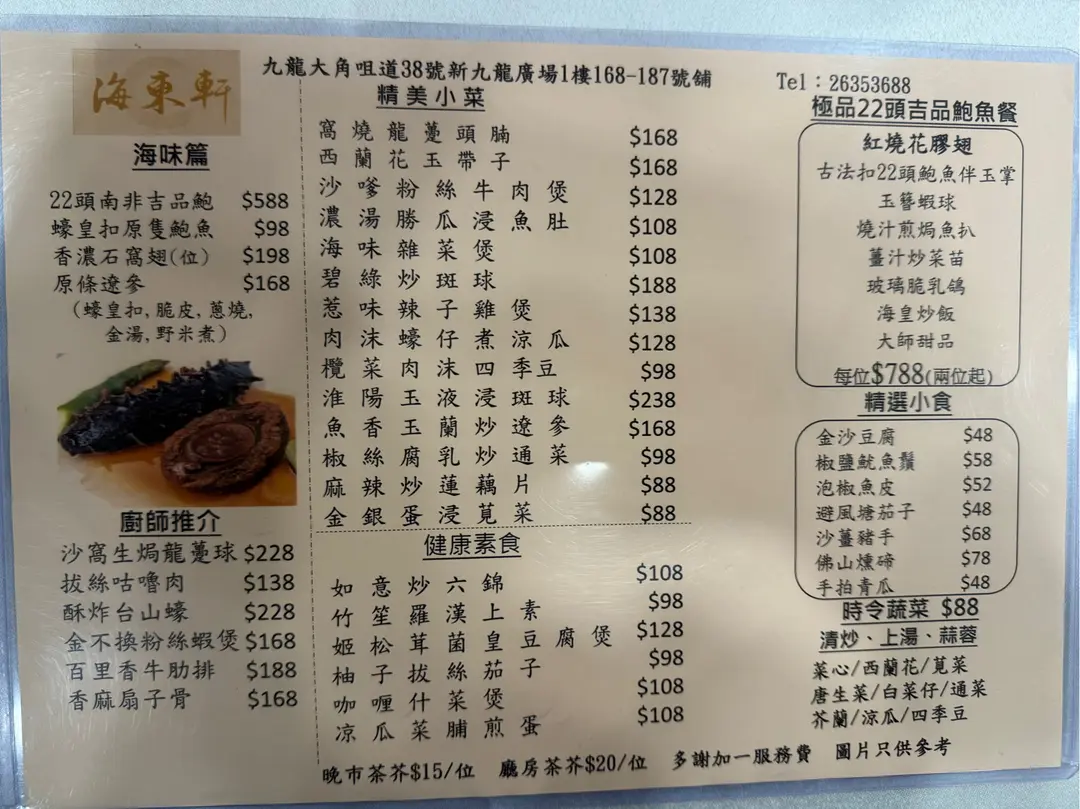 海東軒
九龍大角咀道38號新九龍廣場1樓168-187號舖
Tel：26353688
海味篇
22頭南非吉品鮑 $588
蠔皇扣原隻鮑魚 $98
香濃石窩翅(位) $198
原條遼參 $168
(蠔皇扣,脆皮,蔥燒,
金湯,野米煮)
廚師推介
沙窩生焗龍躉球 $228
拔絲咕嚕肉 $138
酥炸台山蠔 $228
金不換粉絲蝦煲 $168
百里香牛肋排 $188
香麻扇子骨 $168
精美小菜
窩燒龍躉頭腩 $168
西蘭花玉帶子 $168
沙嗲粉絲牛肉煲 $128
濃湯勝瓜浸魚肚 $108
海味雜菜煲 $108
碧綠炒斑球 $188
惹味辣子雞煲 $138
肉沫蠔仔煮涼瓜 $128
欖菜肉沫四季豆 $98
淮陽玉液浸斑球 $238
魚香玉蘭炒遼參 $168
椒絲腐乳炒通菜 $98
麻辣炒蓮藕片 $88
金銀蛋浸莧菜 $88
健康素食
如意炒六錦 $108
竹笙羅漢上素 $98
姬松茸菌皇豆腐煲 $128
柚子拔絲茄子 $98
咖喱什菜煲 $108
凉瓜菜脯煎蛋 $108
極品22頭吉品鮑魚餐
紅燒花膠翅
古法扣22頭鮑魚伴玉掌
玉簪蝦球
燒汁煎焗魚扒
薑汁炒菜苗
玻璃脆乳鴿
海皇炒飯
大師甜品
每位$788(兩位起)
精選小食
金沙豆腐 $48
椒鹽魷魚鬚 $58
泡椒魚皮 $52
避風塘茄子 $48
沙薑豬手 $68
佛山燻蹄 $78
手拍青瓜 $48
時令蔬菜 $88
清炒、上湯、蒜蓉
菜心/西蘭花/莧菜
唐生菜/白菜仔/通菜
芥蘭/涼瓜/四季豆
晚市茶芥$15/位 廳房茶芥$20/位 多謝加一服務費 圖片只供參考